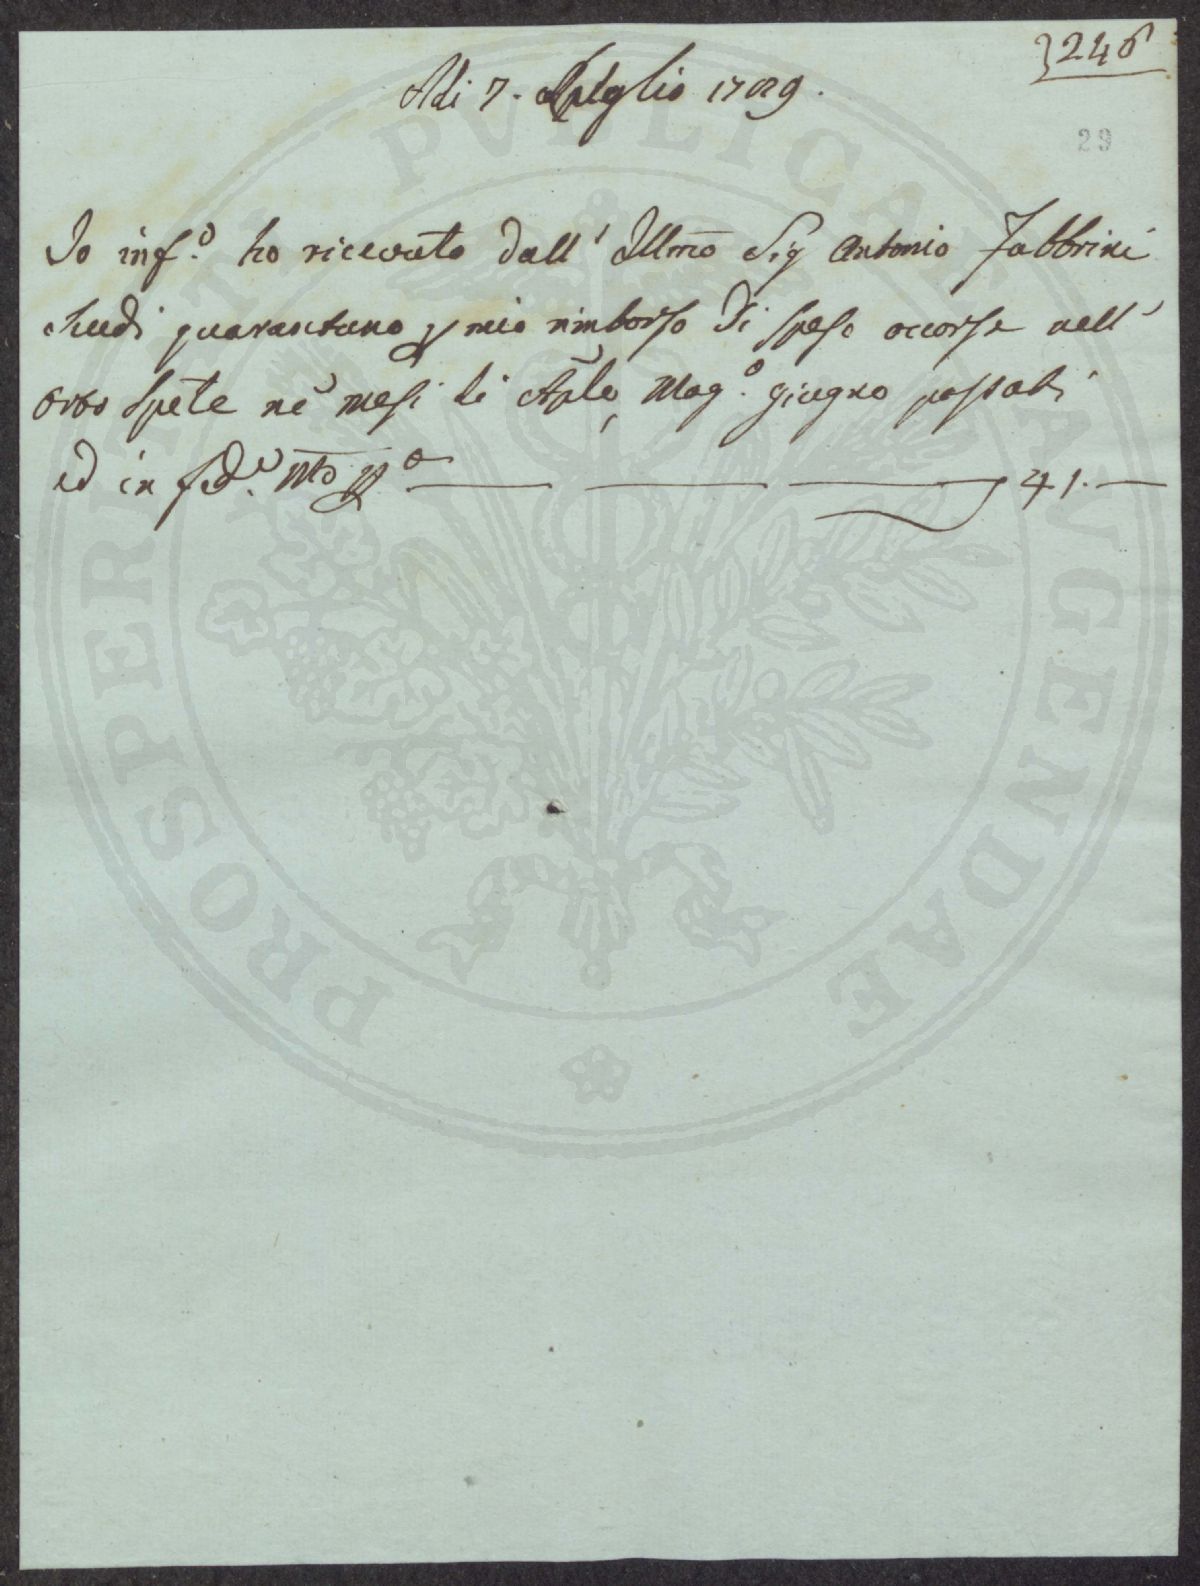 246
Adi 7. Luglio 1789.
29
Io inf.o ho ricevuto dall' Illmo Sig Antonio Fabbrini
scudi quarantuno p mio rimborso di spese occorse nell'
orto Spete ne mesi di Aple, Mag.o giugno passati
ed in fed.e Mo pp.a 41. —
PROSPERITATI PVBLICAE AVGENDAE